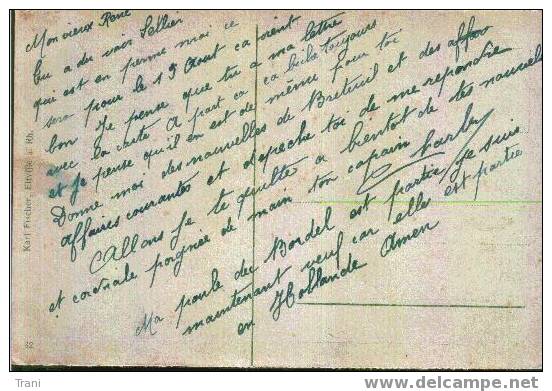 Mon vieux René
tu a du voir Sellier
qui est en perme moi ce
sera pour le 15 Aout ça vient
bon Je pense que tu a ma lettre
avec la carte A part ça ça biche toujours
et je pense qu'il en est de même pour toi
Donne moi des nouvelles de Breteuil et des affai
affaires courantes et depeche toi de me repondre
Allons je te quitte a bientot de tes nouvelle
et cordiale poignée de main ton copain
Ma poule du Bordel est partie je suis
maintenant veuf car elle est partie
en Hollande Amen
Karl Fischer, Eltville a. Rh.
Trani
http://www.delcampe.net